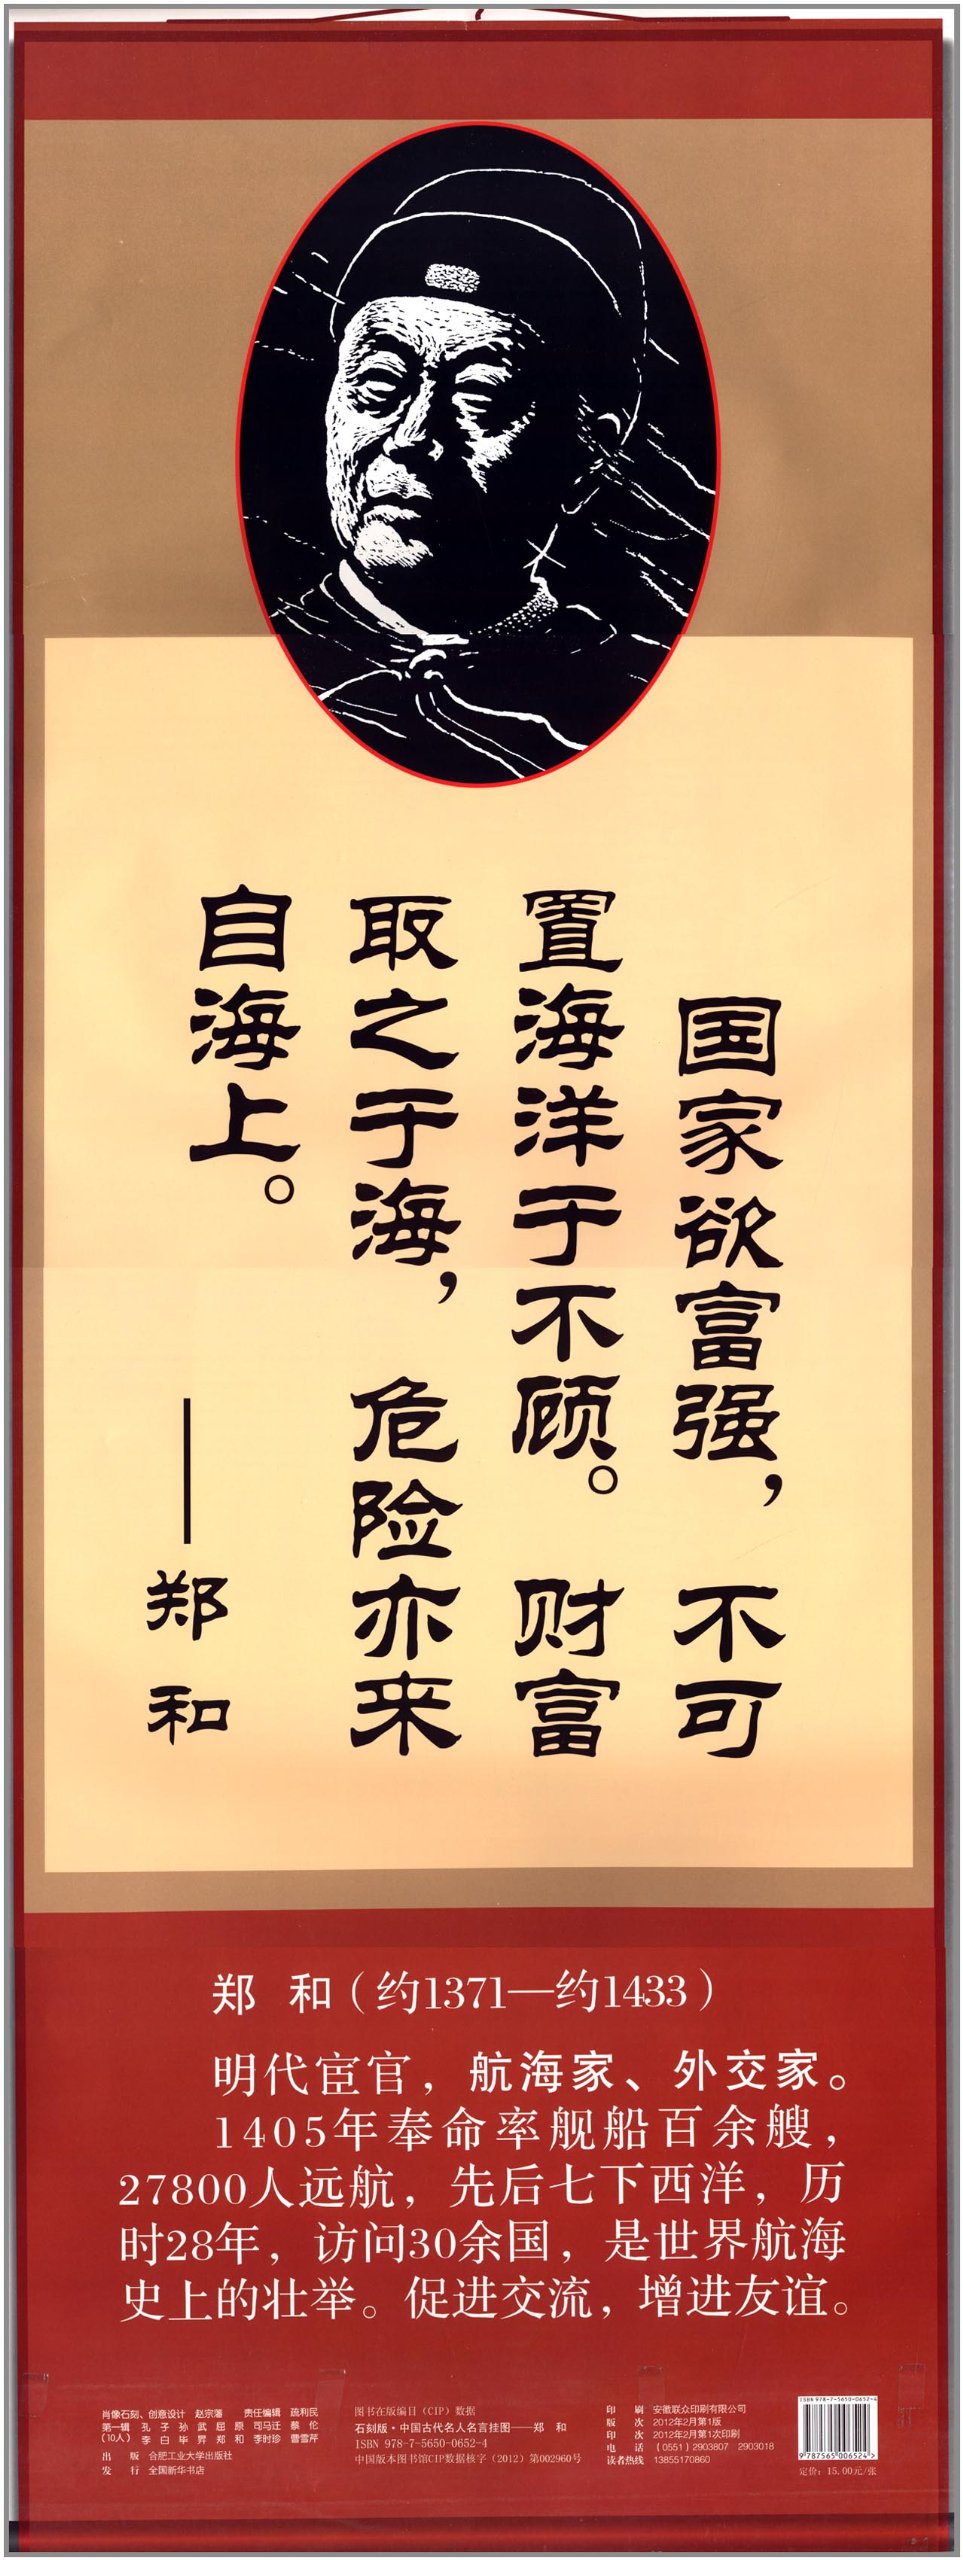 国家欲富强，不可
置海洋于不顾。财富
取之于海，危险亦来
自海上。
——郑和
郑 和（约1371—约1433）
明代宦官，航海家、外交家。
1405年奉命率舰船百余艘，
27800人远航，先后七下西洋，历
时28年，访问30余国，是世界航海
史上的壮举。促进交流，增进友谊。
肖像石刻、创意设计 赵宗藩 责任编辑 疏利民
第一辑 孔子 孙武 屈原 司马迁 蔡伦
（10人） 李白 毕昇 郑和 李时珍 曹雪芹
出 版 合肥工业大学出版社
发 行 全国新华书店
图书在版编目（CIP）数据
石刻版·中国古代名人名言挂图——郑 和
ISBN 978-7-5650-0652-4
中国版本图书馆CIP数据核字（2012）第002960号
印 刷 安徽联众印刷有限公司
版 次 2012年2月第1版
印 次 2012年2月第1次印刷
电 话 （0551）2903807 2903018
读者热线 13855170860
ISBN 978-7-5650-0652-4
9 787565 006524 >
定价：15.00元/张